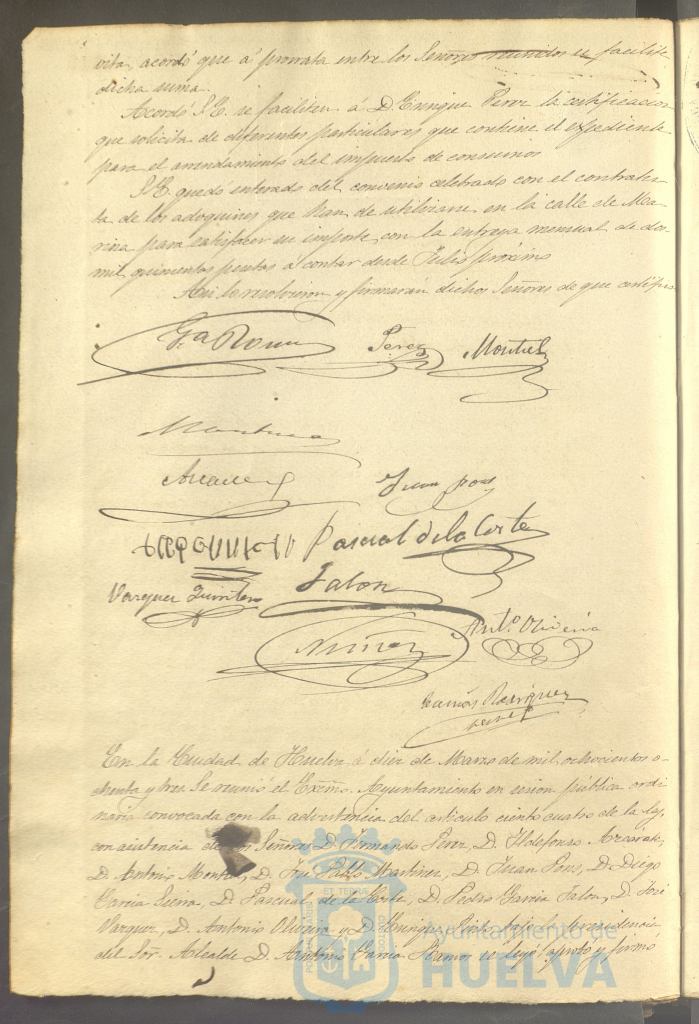 vita, acordó que á prorrata entre los Señores reunidos se facilite
dicha suma.
Acordó S.E. se faciliten á D. Enrique Perez la certificacion
que solicita de diferentes particulares que contiene el espediente
para el arrendamiento del impuesto de consumos
S.E. quedó enterado del convenio celebrado con el contratis-
ta de los adoquines que han de utilizarse en la calle de Ma-
rina para satisfacer su importe con la entrega mensual de dos
mil quinientas pesetas a contar desde Julio próximo
Asi lo resolvieron y firmarán dichos Señores de que certifico
Ga Ramos Perez Montiel
Martinez
Juan Pons
Pascual de la Corte
Vazquez Jalon
Nuñez Anto. Oliveira
Ramón Rodriguez
En la Ciudad de Huelva á diez de Marzo de mil ochocientos o-
chenta y tres Se reunió el Excmo. Ayuntamiento en sesion pública ordi
naria convocada con la advertencia del artículo ciento cuatro de la ley,
con asistencia de los Señores D. Fernando Perez, D. Ildefonso
D. Antonio Montiel, D. José Pablo Martinez, D. Juan Pons, D. Diego
Garcia D. Pascual de la Corte, D. Pedro Garcia Jalon, D. José
Vazquez, D. Antonio Oliveira y D. Enrique bajo la presidencia
del Sor. Alcalde D. Antonio Garcia Ramos se leyó aprobó y firmó
Ayuntamiento de
HUELVA